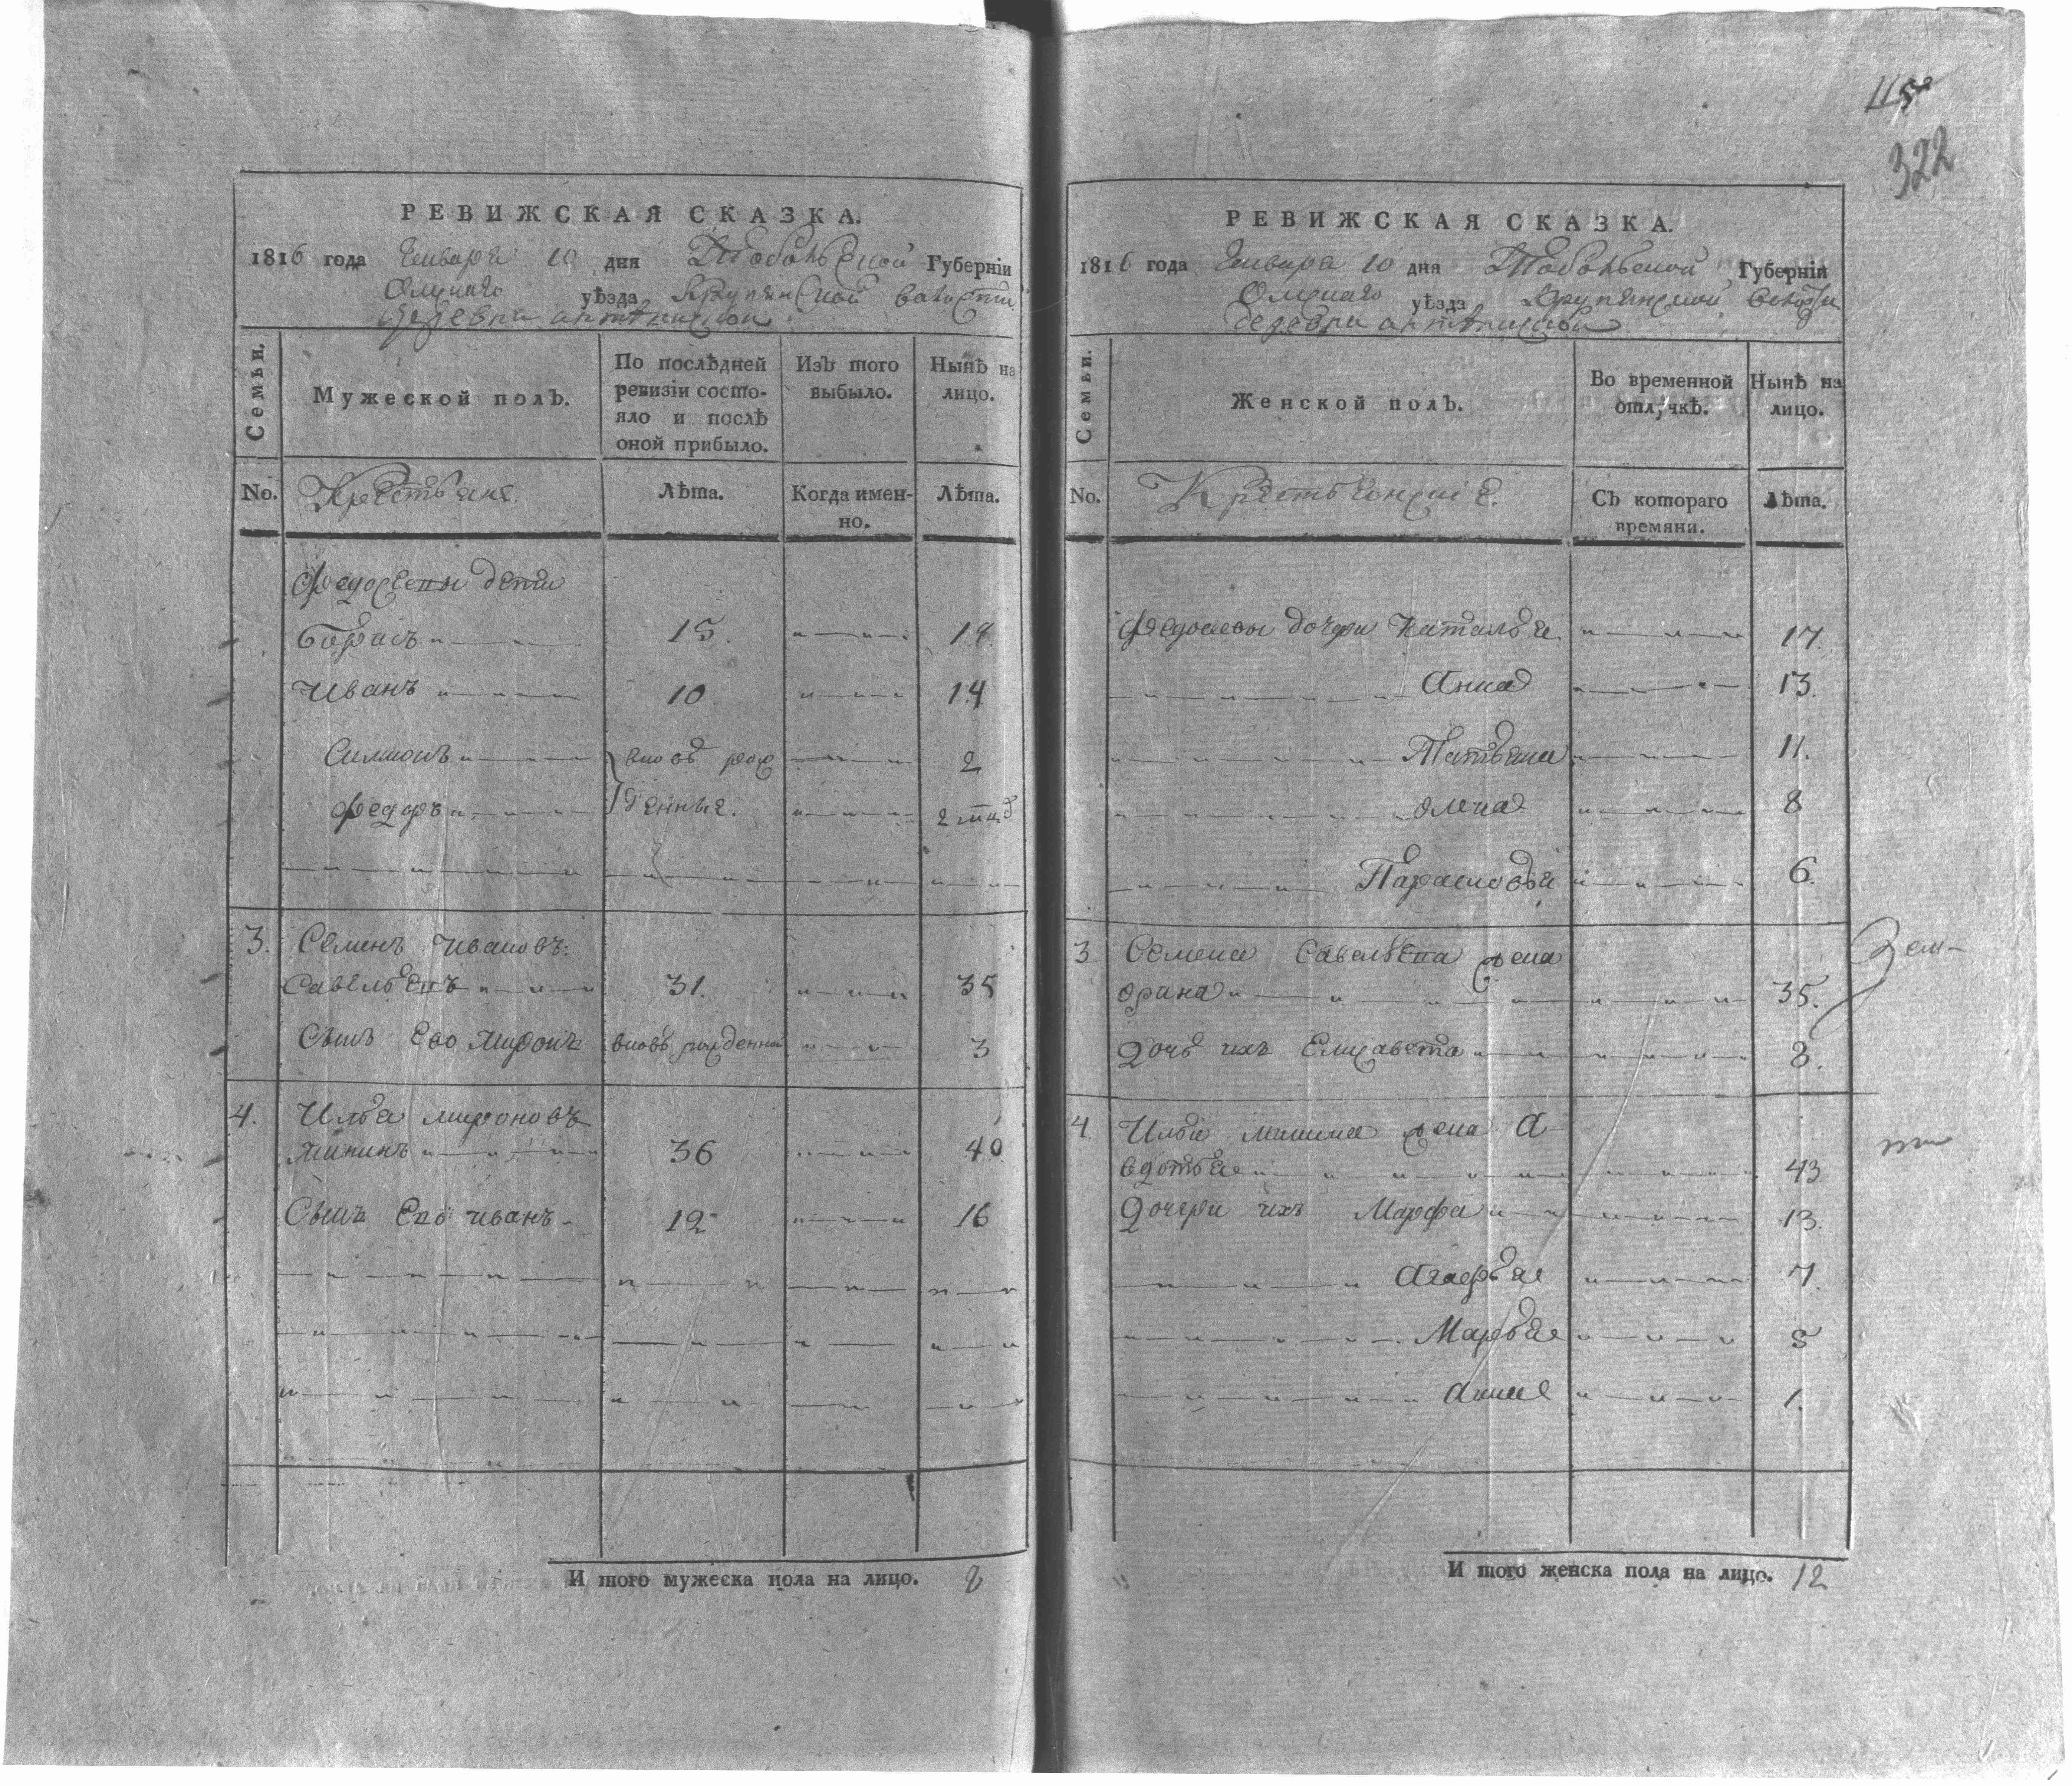 322
РЕВИЖСКАЯ СКАЗКА.
1816 года Генваря 10 дня Тобольской Губерніи
Омскаго уѣзда Крупянской волости
деревни
Семьи.
Мужеской полъ.
По послѣдней ревизіи состо-
яло и послѣ
оной прибыло.
Изъ того
выбыло.
Нынѣ на
лицо.
No.
Крестьяне.
Лѣта.
Когда имен-
но.
Лѣта.
Федосеевы дети
Борисъ 15. 18.
Иванъ 10 14
Симионъ вновь рож 2
Федоръ денные. 2
3. Семенъ Ивановъ
Савельевъ 31. 35
Сынъ Ево Миронъ вновь рожденной 3
4. Илья мироновъ
Мининъ 36 40
Сынъ Ево иванъ 12 16
И того мужеска пола на лицо. 8
РЕВИЖСКАЯ СКАЗКА.
1816 года Генваря 10 дня Тобольской Губерніи
Омскаго уѣзда Крупянской волости
деревни
Семьи.
Женской полъ.
Во временной
отлучкѣ.
Нынѣ на
лицо.
No.
Крестьянскіе.
Съ котораго
времяни.
Лѣта.
Федосеевы дочери Наталья 17.
Анна 13.
Татьяна 11.
олена 8
Парасковья 6.
3 Семена Савельева жена
орина 35.
Дочь ихъ Елисавета 8.
4 Ильи минина жена А
вдотья 43
Дочери ихъ Марфа 13.
Агафья 7.
Марья 5
Анна 1.
И того женска пола на лицо. 12